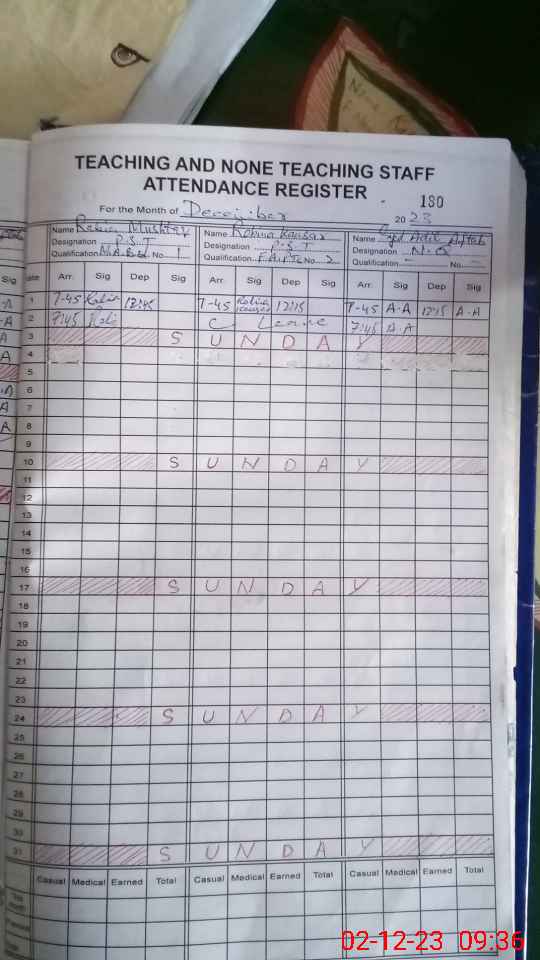 TEACHING AND NONE TEACHING STAFF
ATTENDANCE REGISTER
180
For the Month of December 2023
Name Rabia Mushtaq Name Rahma Kausar Name Syed Adil Aftab
Designation P.S.T Designation P.S.T Designation N-Q
Qualification M.A.B.Ed No. 1 Qualification F.A.PTC No. 2 Qualification – No. –
Date Arr. Sig Dep Sig Arr. Sig Dep Sig Arr. Sig Dep Sig
1 7-45 Rabia 12:45 7-45 12:15 7-45 A-A 12:15 A-A
2 7:45 Rabi C Leave 7:45 A.A
3 SUNDAY
4
5
6
7
8
9
10 SUNDAY
11
12
13
14
15
16
17 SUNDAY
18
19
20
21
22
23
24 SUNDAY
25
26
27
28
29
30
31 SUNDAY
Casual Medical Earned Total Casual Medical Earned Total Casual Medical Earned Total
02-12-23 09:36